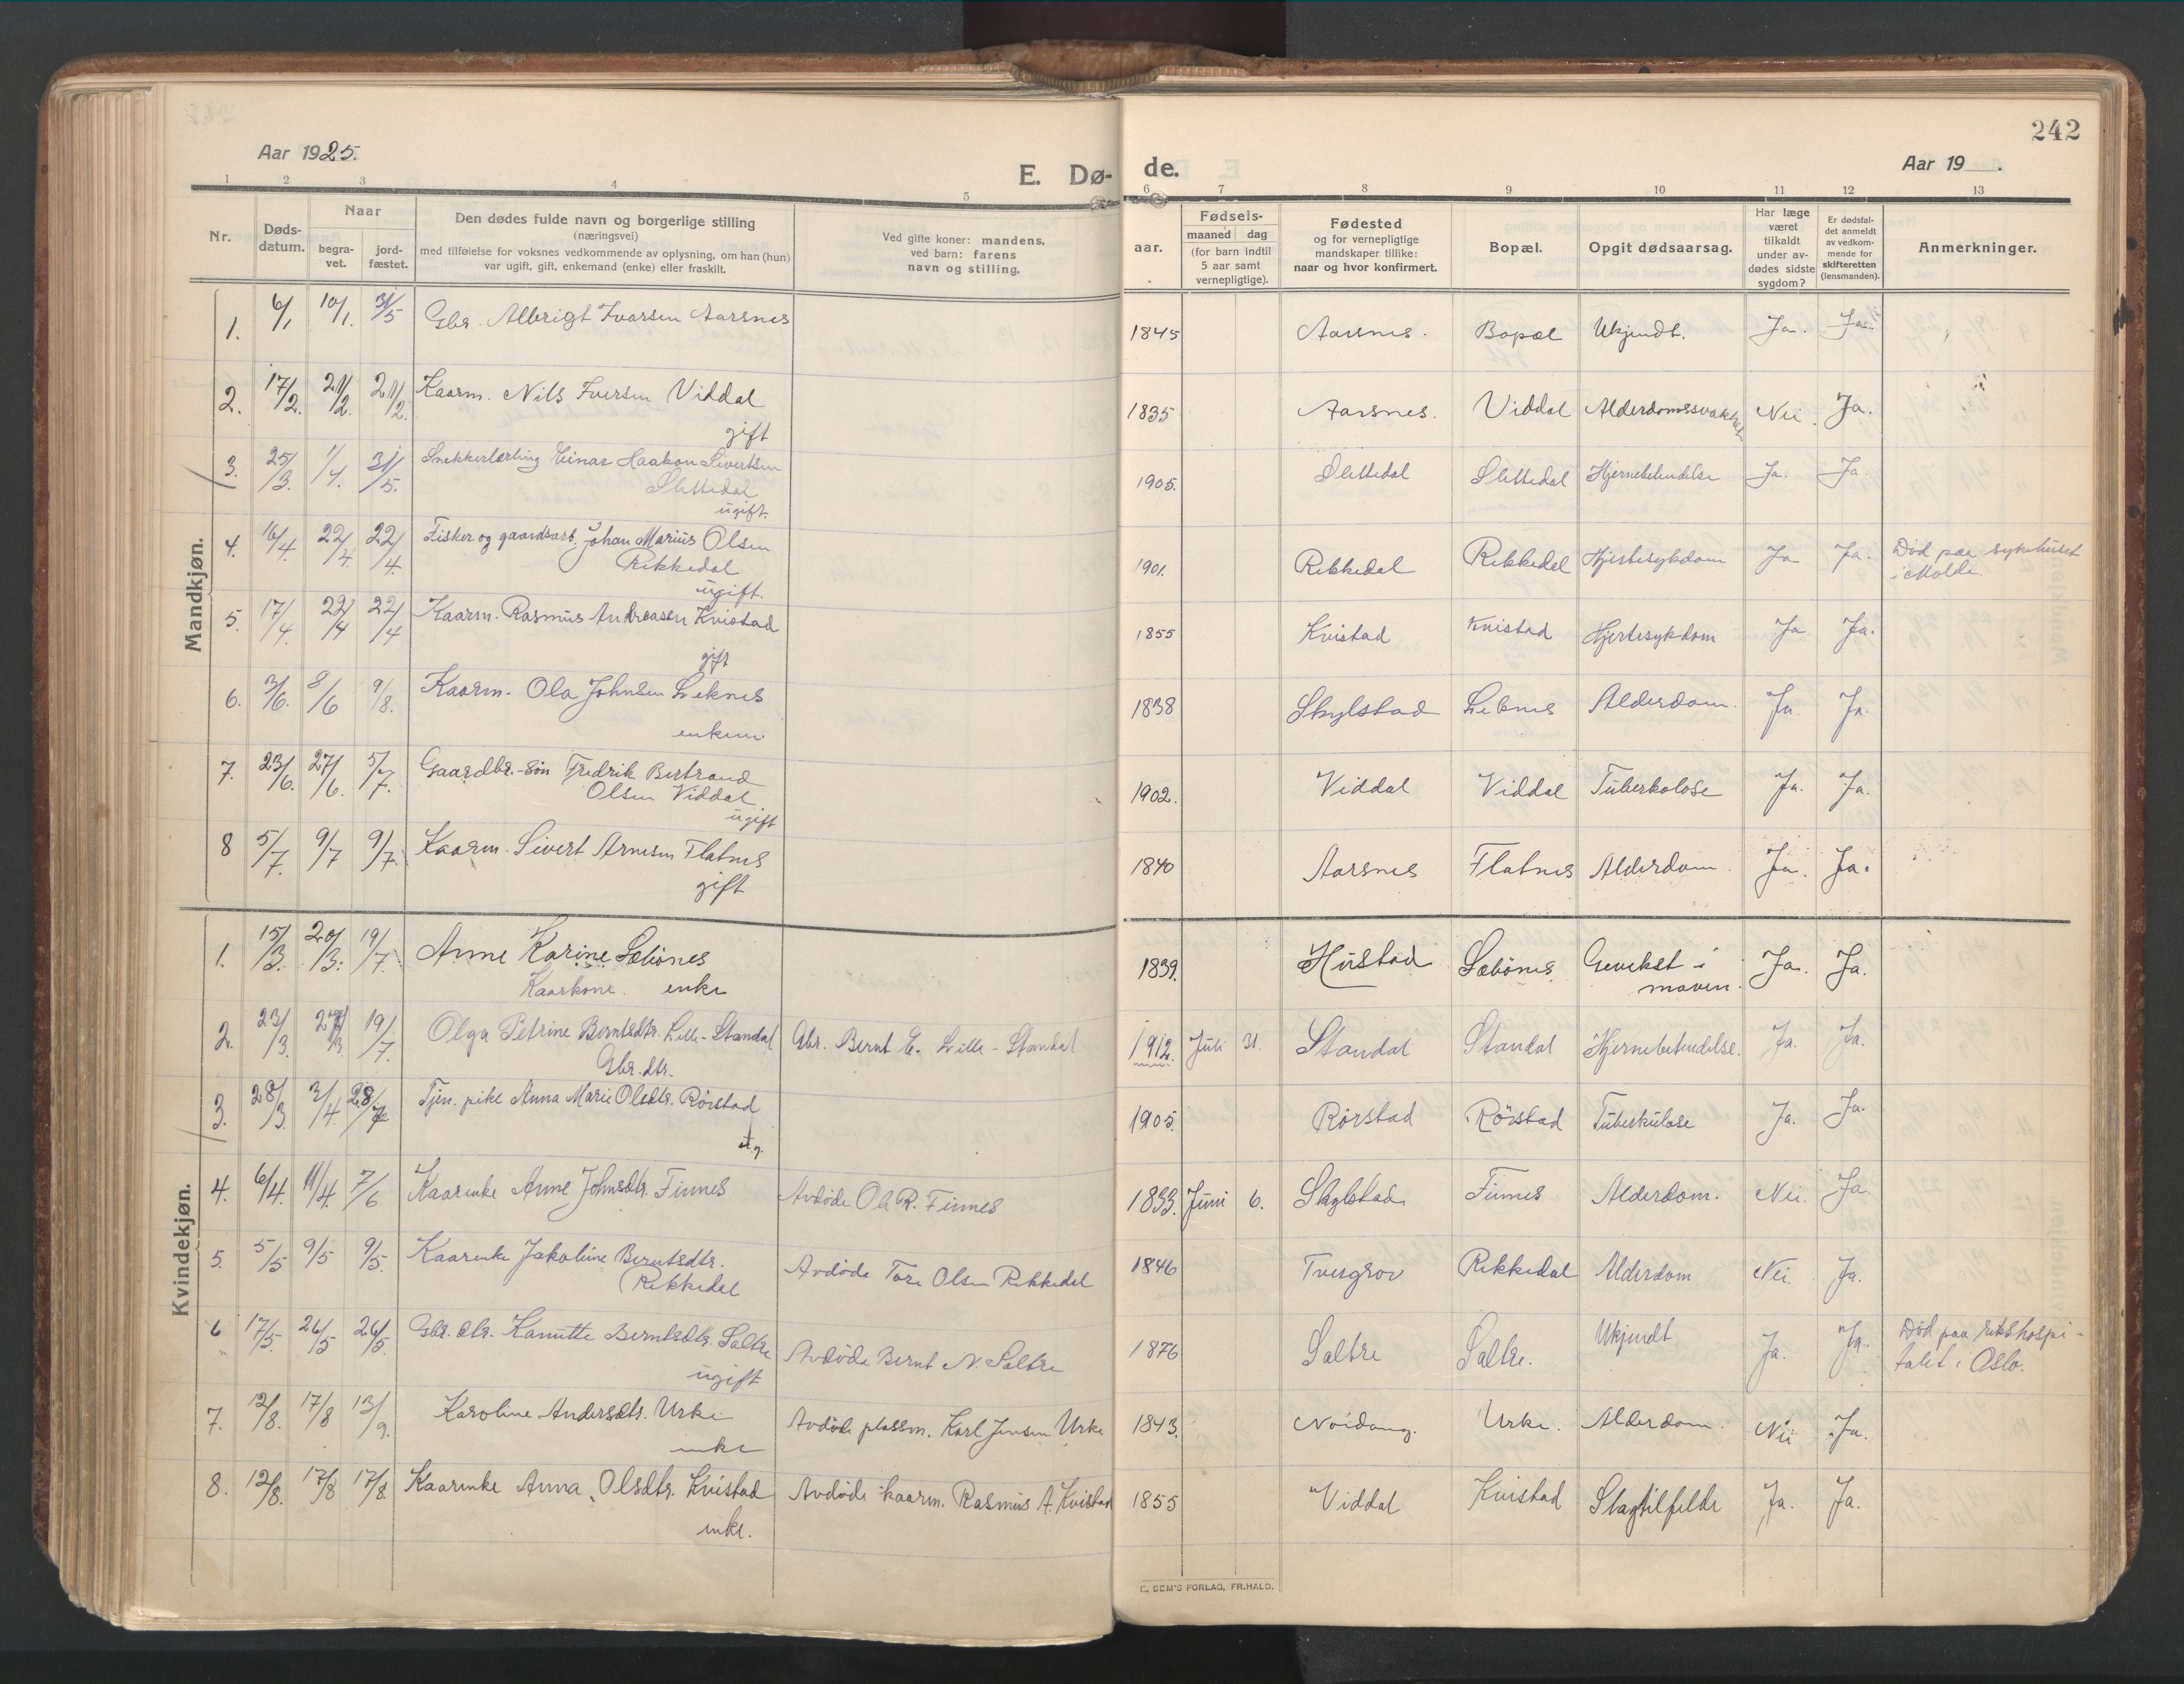 242
Aar 1925.
E. Dø-
de.
Aar 19 .
1 2 3 4 5 6 7 8 9 10 11 12 13
Nr. Døds-datum. Naar begra-vet. jord-fæstet. Den dødes fulde navn og borgerlige stilling (næringsvei) med tilføielse for voksnes vedkommende av oplysning, om han (hun) var ugift, gift, enkemand (enke) eller fraskilt. Ved gifte koner: mandens, ved barn: farens navn og stilling.
aar. Fødsels- maaned dag (for barn indtil 5 aar samt vernepligtige). Fødested og for vernepligtige mandskaper tillike: naar og hvor konfirmert. Bopæl. Opgit dødsaarsag. Har læge været tilkaldt under av-dødes sidste sygdom? Er dødsfal-det anmeldt av vedkom-mende for skifteretten (lensmanden). Anmerkninger.
Mandkjøn.
1. 6/1 10/1. 31/5 Gbr. Albrigt Ivarsen Aarsnes 1845 Aarsnes. Bopæl Ukjendt. Ja. Ja.
2. 17/2. 21/2. 21/2. Kaarm. Nils Iversen Viddal 1835 Aarsnes. Viddal Alderdomssvakhet Nei. Ja.
gift
3. 25/3. 1/4. 31/5. Snekkerlærling Einar Haakon Sivertsen 1905. Slettedal Slettedal Hjernebetendelse Ja. Ja
Slettedal
ugift.
4. 16/4. 22/4. 22/4. Fisker og gaardsarb. Johan Marius Olsen 1901. Rekkedal Rekkedal Hjertesykdom Ja Ja. Død paa sykehuset
Rekkedal i Molde
ugift.
5. 17/4. 22/4 22/4 Kaarm. Rasmus Andreassen Kvistad 1855 Kvistad Kvistad Hjertesykdom Ja Ja.
gift
6. 3/6. 8/6 9/8. Kaarm. Ola Johnsen Leknes 1838 Skylstad Leknes Alderdom. Ja Ja
enkem.
7. 23/6. 27/6. 5/7. Gaardbr.-søn Fredrik Bertrand 1902. Viddal Viddal Tuberkolose Ja. Ja.
Olsen Viddal
ugift
8 5/7. 9/7 9/7. Kaarm. Sivert Arnesen Flatnes 1840 Aarsnes Flatnes Alderdom. Ja. Ja.
gift
Kvindekjøn.
1. 15/3. 20/3. 19/7. Anne Karine Sæbønes 1839. Hustad Sæbønes Gevekst i Ja. Ja.
Kaarkone. enke maven.
2. 23/3. 27/3. 19/7. Olga Petrine Berntsdtr. Lille-Standal Gbr. Bernt E. Lille-Standal 1912. Juli 31. Standal Standal Hjernebetendelse. Ja. Ja.
Gbr. dtr.
3. 28/3. 3/4. 28/7 Tjen. pike Anna Marie Olsdtr. Rørstad 1905. Rørstad Rørstad Tuberkulose Ja. Ja.
4. 6/4. 11/4. 7/6 Kaarenke Anne Johnsdtr. Finnes Avdøde Ola R. Finnes 1833. Juni 6. Skylstad Finnes Alderdom. Nei. Ja.
5. 5/5 9/5 9/5. Kaarenke Jakobine Berntsdtr. Avdøde Tore Olsen Rekkedal 1846 Tvergrov Rekkedal Alderdom Nei. Ja.
Rekkedal
6 17/5. 26/5 26/5. Gbr. dtr. Kanutte Berntsdtr. Sætre Avdøde Bernt N. Sætre 1876 Sætre Sætre. Ukjendt Ja. Ja. Død paa rikshospi-
ugift talet i Oslo.
7. 12/8. 17/8 13/9. Karoline Andersdtr. Urke Avdøde plassm. Karl Jensen Urke 1843. Norddang. Urke. Alderdom. Nei Ja.
enke
8. 12/8. 17/8 17/8. Kaarenke Anna Olsdtr. Kvistad Avdøde kaarm. Rasmus A. Kvistad 1855 Viddal Kvistad Slagtilfelde Ja. Ja.
enke.
E. SEM'S FORLAG, FR.HALD.